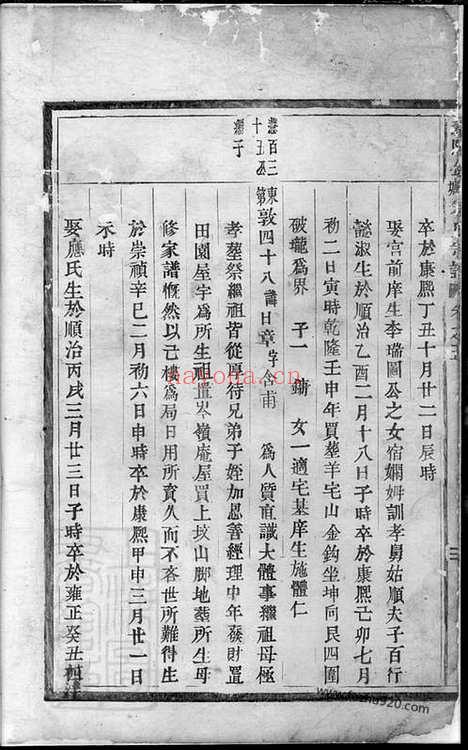 卒於康熙丁丑十月廿二日辰時
娶宮前庠生李瑞圖公之女宿嫻姆訓孝舅姑順夫子百行
懿淑生於順治乙酉二月十八日子時卒於康熙己卯七月
初二日寅時乾隆壬申年買塟羊宅山金鈎坐坤向艮四圍
破壠爲界 子一 鏘 女一適宅基庠生施體仁
東第
敦四十八諱日章字令甫 爲人質直識大體事繼祖母極
孝塟祭繼祖皆從厚待兄弟子姪加恩善經理中年發財置
田園屋宇爲所生祖置岑嶺庵屋買上坟山脚地塟所生母
修家譜慨然以己樓爲局日用所賣久而不吝世所難得生
於崇禎辛巳二月初六日申時卒於康熙甲申三月廿一日
未時
娶應氏生於順治丙戌三月廿三日子時卒於雍正癸丑
百三
十五
繼子
三
nayona.cn
www.foezhu920.com